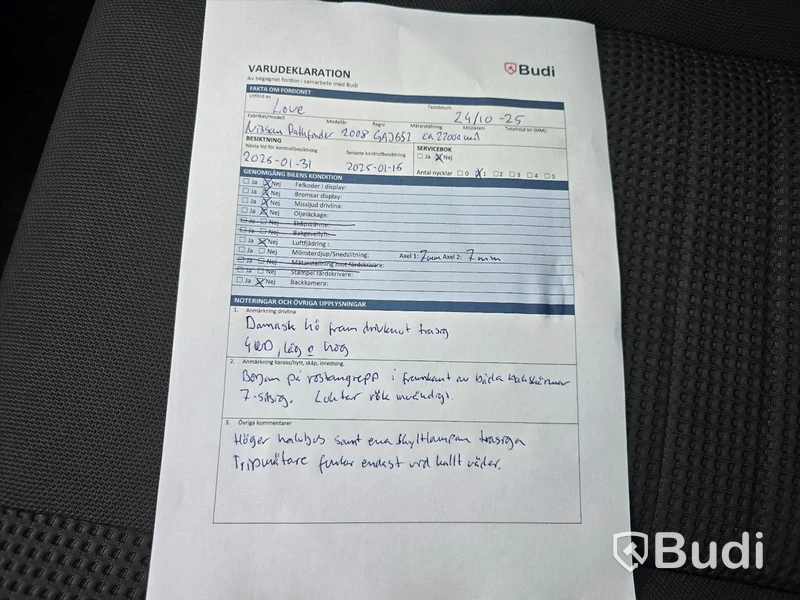 VARUDEKLARATION
Av begagnat fordon i samarbete med Budi
Budi
FAKTA OM FORDONET
Utförd av Testdatum
Love 24/10 -25
Fabrikat/modell Modellår Regnr Mätarställning Miljöklass Totalhöjd bil (MM):
Nissan Pathfinder 2008 GAJ657 ca 22000 mil
BESIKTNING SERVICEBOK
Nästa tid för kontrollbesiktning Senaste kontrollbesiktning ☐ Ja ☒ Nej
2026-01-31 2025-01-16
Antal nycklar ☐ 0 ☒ 1 ☐ 2 ☐ 3 ☐ 4 ☐ 5
GENOMGÅNG BILENS KONDITION
☐ Ja ☒ Nej Felkoder i display:
☐ Ja ☒ Nej Bromsar display:
☐ Ja ☒ Nej Missljud drivlina:
☐ Ja ☒ Nej Oljeläckage:
☐ Ja ☐ Nej Skåpvärme:
☐ Ja ☐ Nej Bakgavellyft:
☐ Ja ☒ Nej Luftfjädring :
☐ Ja ☐ Nej Mönsterdjup/Snedslitning: Axel 1: 7mm Axel 2: 7mm
☐ Ja ☐ Nej Mätarställning mot färdskrivare:
☐ Ja ☐ Nej Stämpel färdskrivare:
☐ Ja ☒ Nej Backkamera:
NOTERINGAR OCH ÖVRIGA UPPLYSNINGAR
1. Anmärkning drivlina
Damask hö fram drivknut trasig
4WD, låg o hög
2. Anmärkning kaross/hytt, skåp, inredning.
Början på rostangrepp i framkant av båda bakskärmar
7-sitsig. Luktar rök invändigt.
3. Övriga kommentarer
Höger halvljus samt ena skyltlampan trasiga
Tripmätare funkar endast vid kallt väder.
Budi